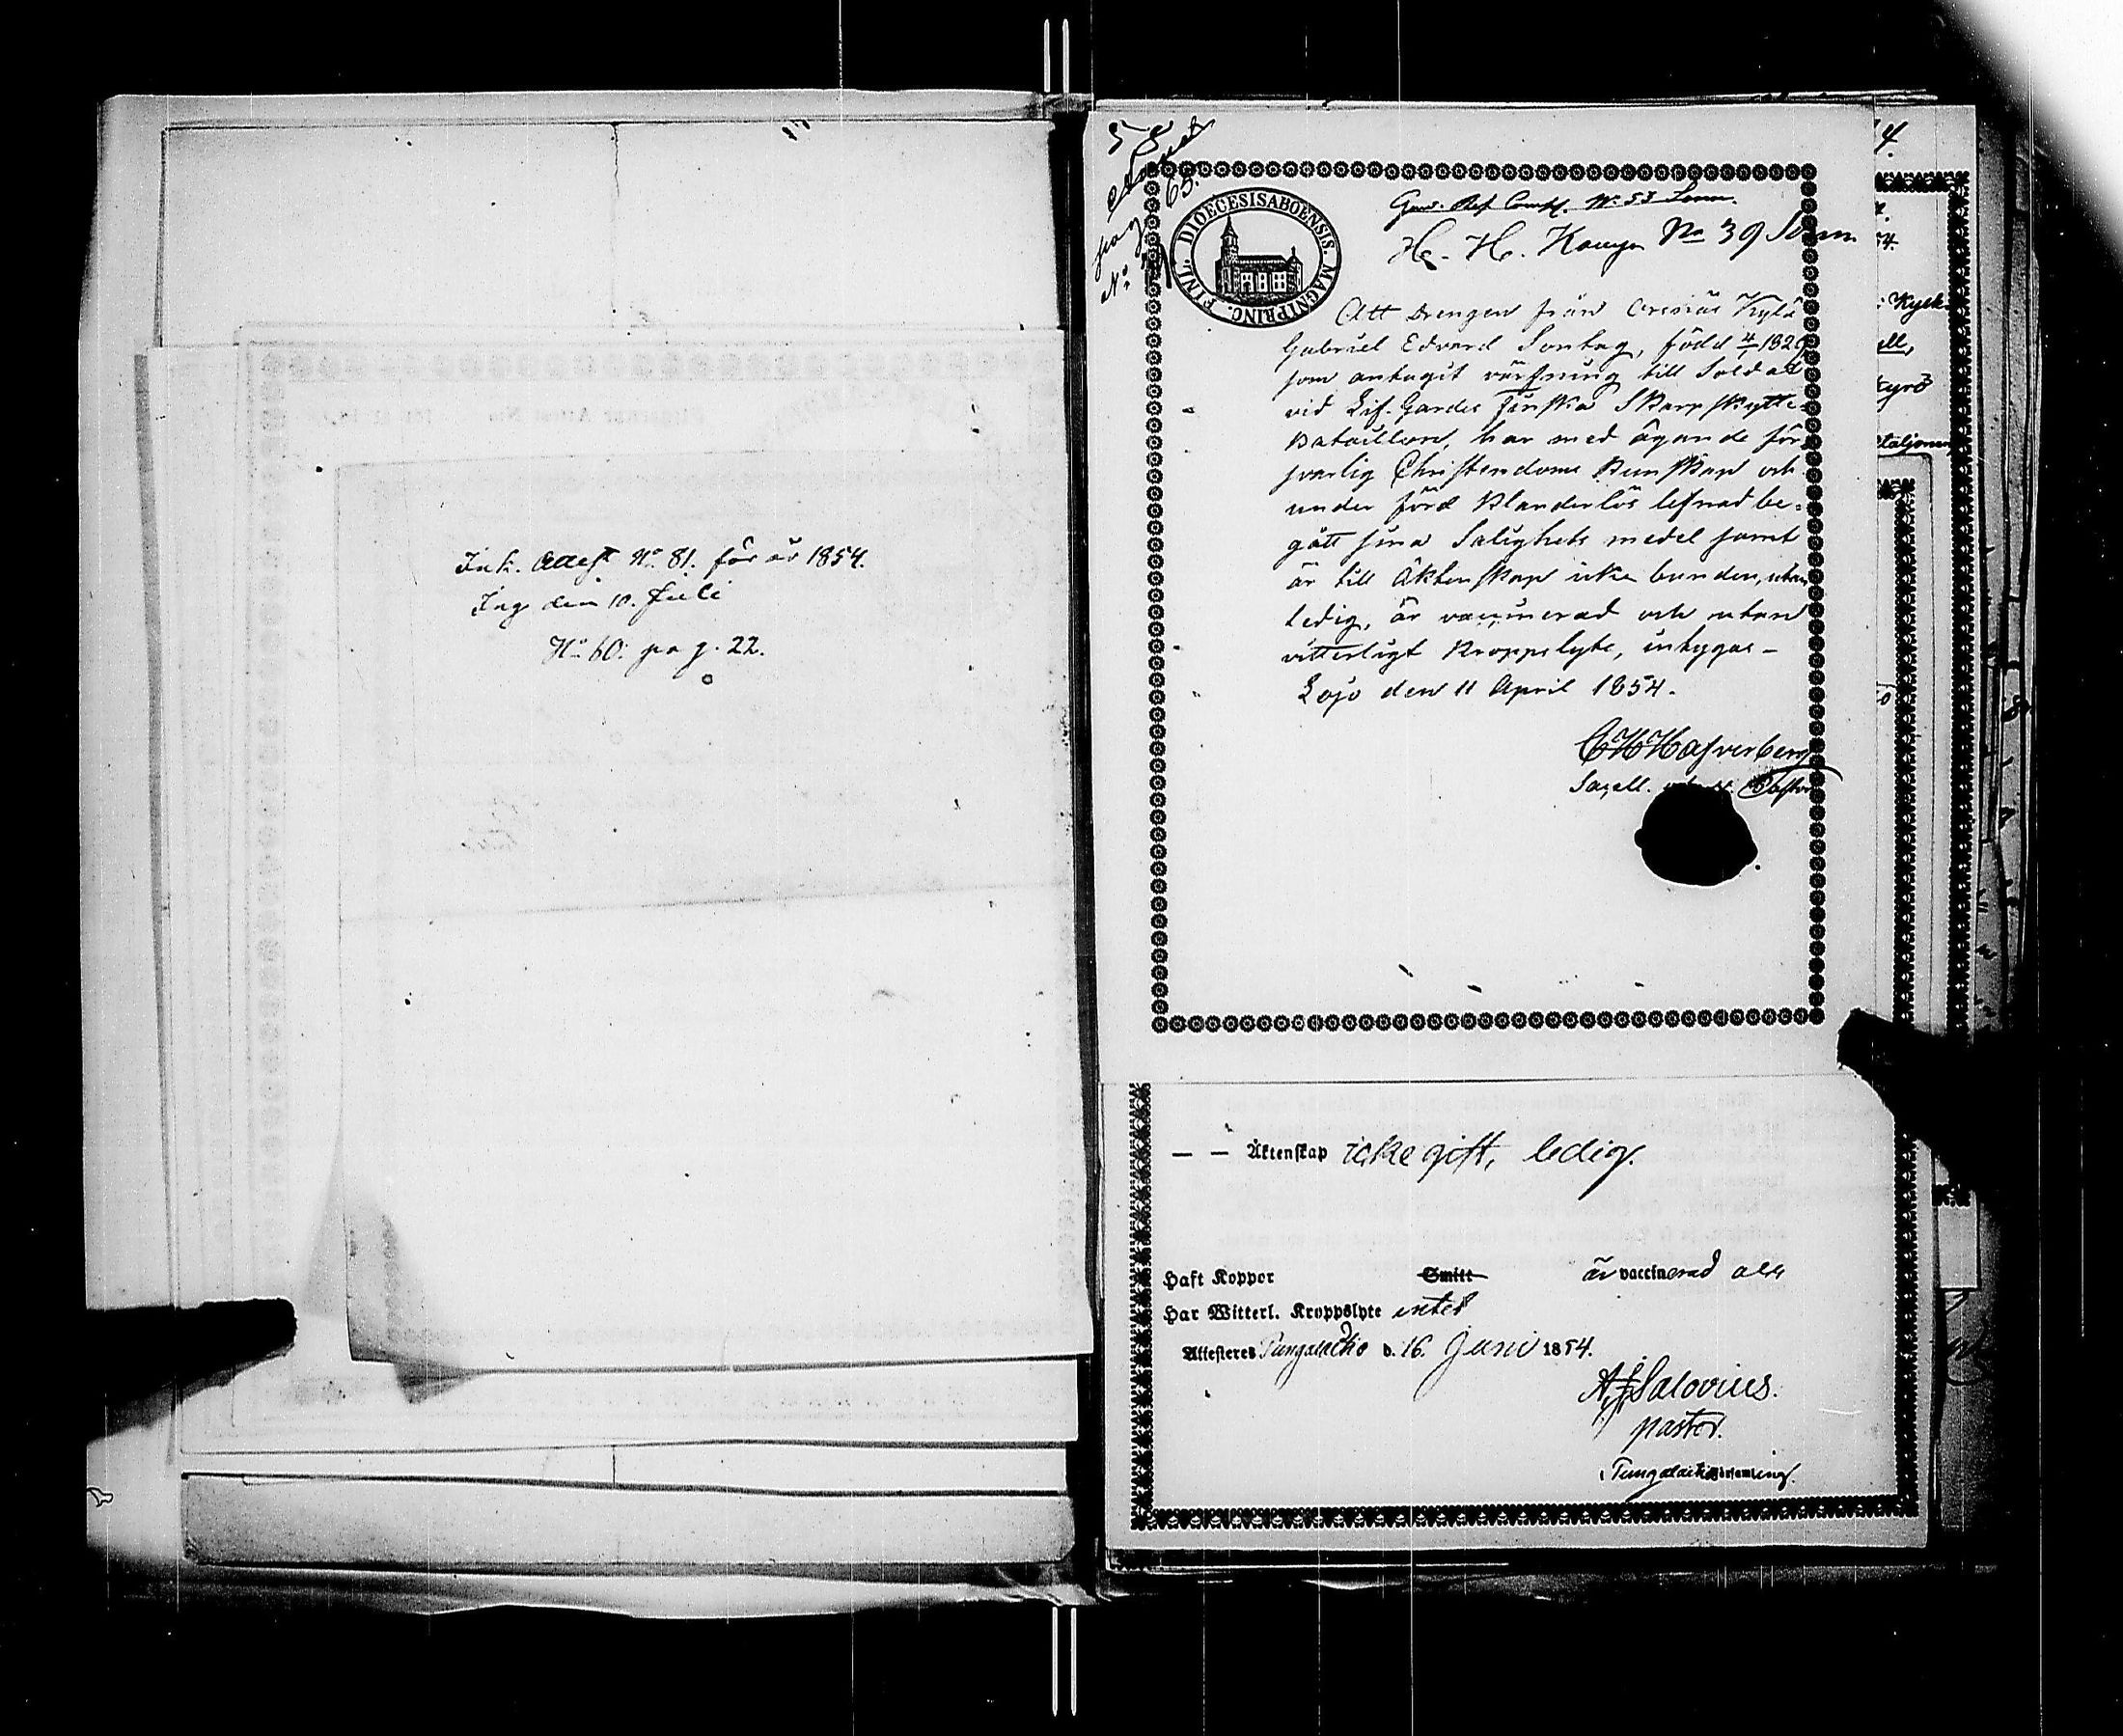 Ink. Attest No 81. för år 1854.
Ing den 10. Juli
No 60. pag. 22.
58
pag 65.
FINL. DIOECESISABOENSIS. MAGNIPRINC.
Comp. No 53 Sonn.
No 39 Sonn
Att Drengen från Kylä
Gabriel Edvard Sontag, född 4/1 1829
som antagit värfning till Soldat
vid Lif-Gardes Finska Skarpskytte-
Bataillon, har med ägande för-
svarlig Christendoms kunskap och
under förd klanderlös lefnad be-
gått sina Salighets medel samt
är till Äktenskap icke bunden, utan
ledig, är vaccinerad och utan
vitterligt Kroppslyte, intygas -
Lojo den 11 April 1854.
Sacell. Pastor
— — Äktenskap icke gift, ledig.
Haft Koppor Smitt är vaccinerad
Har Witterl. Kroppslyte intet
Attesteres Pungalaitio d. 16. Juni 1854.
A. F. Salovius.
pastor.
Pungalaitio församling.
4.
54.
Kyrö